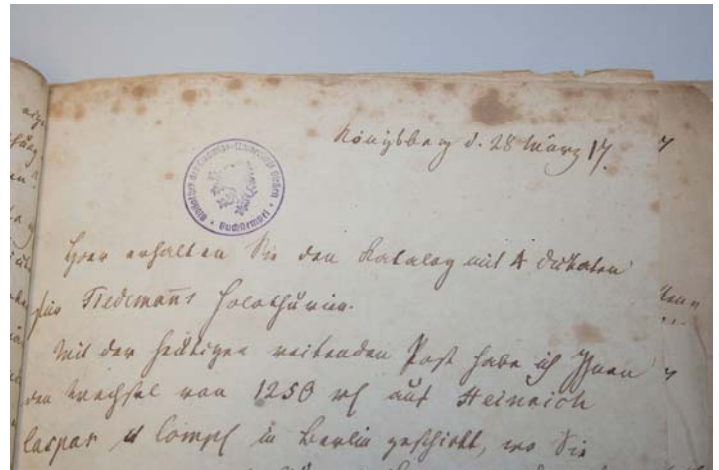 Königsberg d. 28 März 17.
Bibliothek der Ludwigs-Universität Gießen
Hier erhalten Sie den Katalog mit 4 Dukaten
für Tiedemanns Holothurien.
Mit der heutigen reitenden Post habe ich Ihnen
den Wechsel von 1250 auf Heinrich
Caspar & Comp in Berlin geschickt, wo Sie